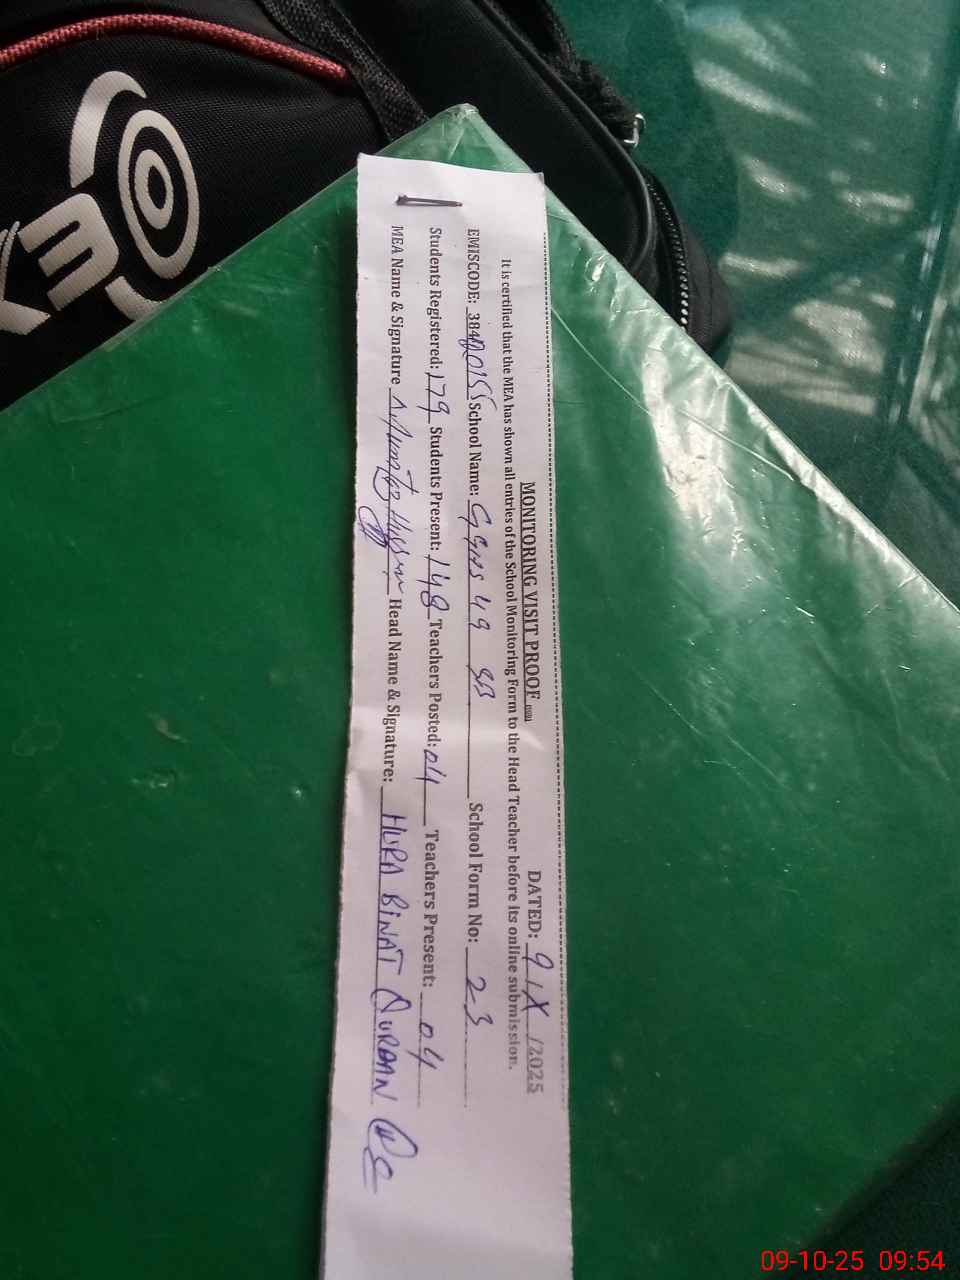 MONITORING VISIT PROOF DATED: 9/X/2025
It is certified that the MEA has shown all entries of the School Monitoring Form to the Head Teacher before its online submission.
EMISCODE: 384 0155 School Name: GGHS 49 SB School Form No: 23
Students Registered: 179 Students Present: 148 Teachers Posted: 04 Teachers Present: 04
MEA Name & Signature Hussain Head Name & Signature: HURA BINAT QURBAN
09-10-25 09:54